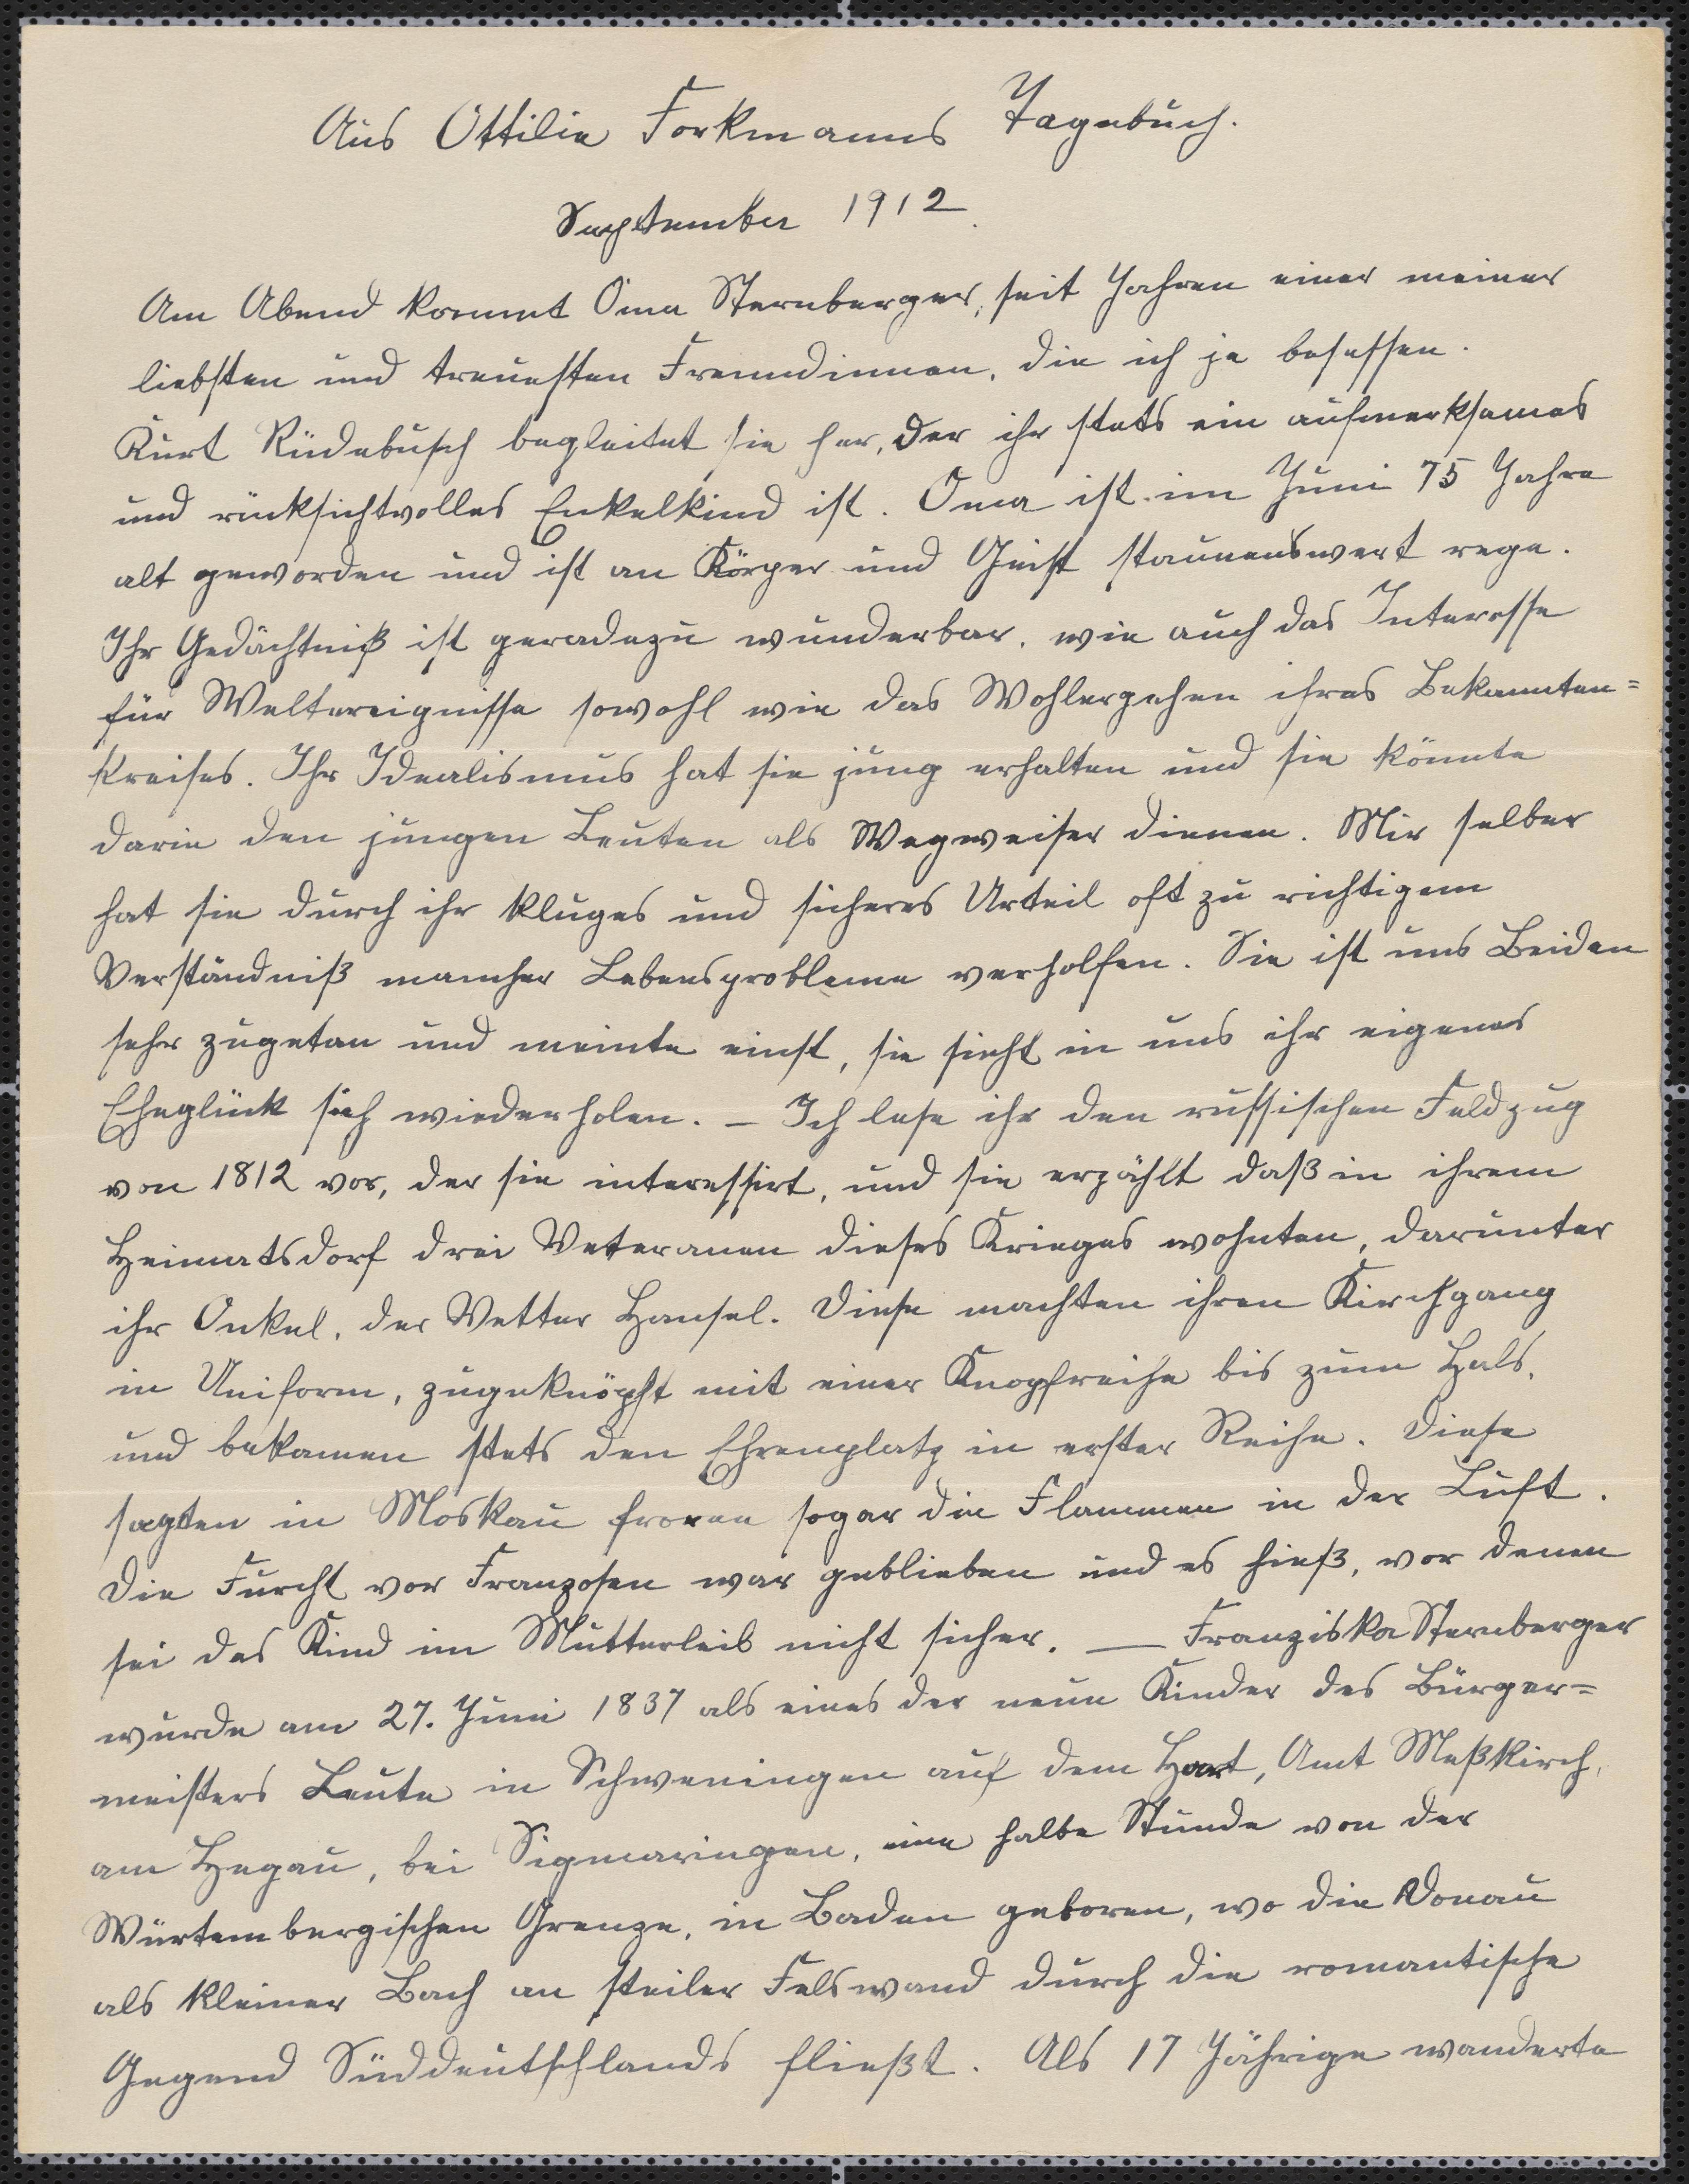 Aus Ottilie Forkmanns Tagebuch.
September 1912.
Am Abend kommt Oma Sternberger, seit Jahren einer meiner
liebsten und treuesten Freundinnen, die ich je besessen.
Kurt Rüdebusch begleitet sie her, der ihr stets ein aufmerksames
und rücksichtvolles Enkelkind ist. Oma ist im Juni 75 Jahre
alt geworden und ist an Körper und Geist staunenswert rege.
Ihr Gedächtniß ist geradezu wunderbar, wie auch das Interesse
für Weltereignisse sowohl wie das Wohlergehen ihres Bekannten=
kreises. Ihr Idealismus hat sie jung erhalten und sie könnte
darin den jungen Leuten als Wegweiser dienen. Mir selber
hat sie durch ihr kluges und sicheres Urteil oft zu richtigem
Verständniß mancher Lebensprobleme verholfen. Sie ist uns Beiden
sehr zugetan und meinte einst, sie sieht in uns ihr eigenes
Eheglück sich wiederholen. – Ich lese ihr den russischen Feldzug
von 1812 vor, der sie interessirt, und sie erzählt daß in ihrem
Heimatsdorf drei Veteranen dieses Krieges wohnten, darunter
ihr Onkel, der Vetter Hansel. Diese machten ihren Kirchgang
in Uniform, zugeknöpft mit einer Knopfreihe bis zum Hals,
und bekamen stets den Ehrenplatz in erster Reihe. Diese
sagten in Moskau froren sogar die Flammen in der Luft.
Die Furcht vor Franzosen war geblieben und es hieß, vor denen
sei das Kind im Mutterleib nicht sicher. — Franziska Sternberger
wurde am 27. Juni 1837 als eines der neun Kinder des Bürger=
meisters Leute in Schweningen auf dem Hart, Amt Meßkirch,
am Hegau, bei Sigmaringen, eine halbe Stunde von der
Würtembergischen Grenze, in Baden geboren, wo die Donau
als kleiner Bach an steiler Felswand durch die romantische
Gegend Süddeutschlands fließt. Als 17 Jährige wanderte